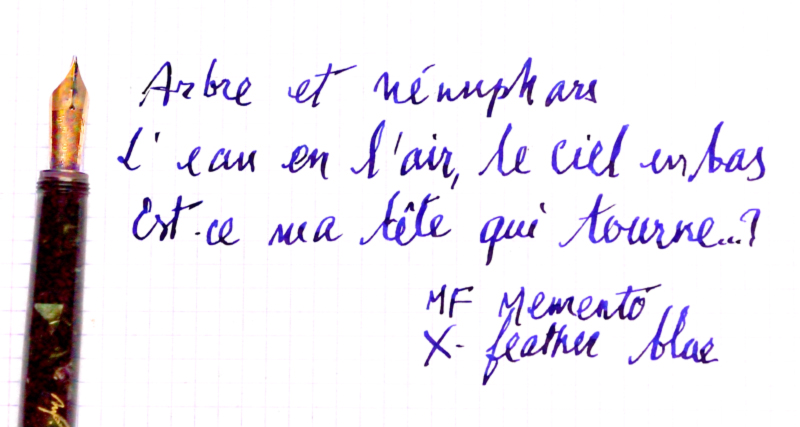 Arbre et nénuphars
L'eau en l'air, le ciel en bas
Est-ce ma tête qui tourne...?
MF Memento
X-feather blue